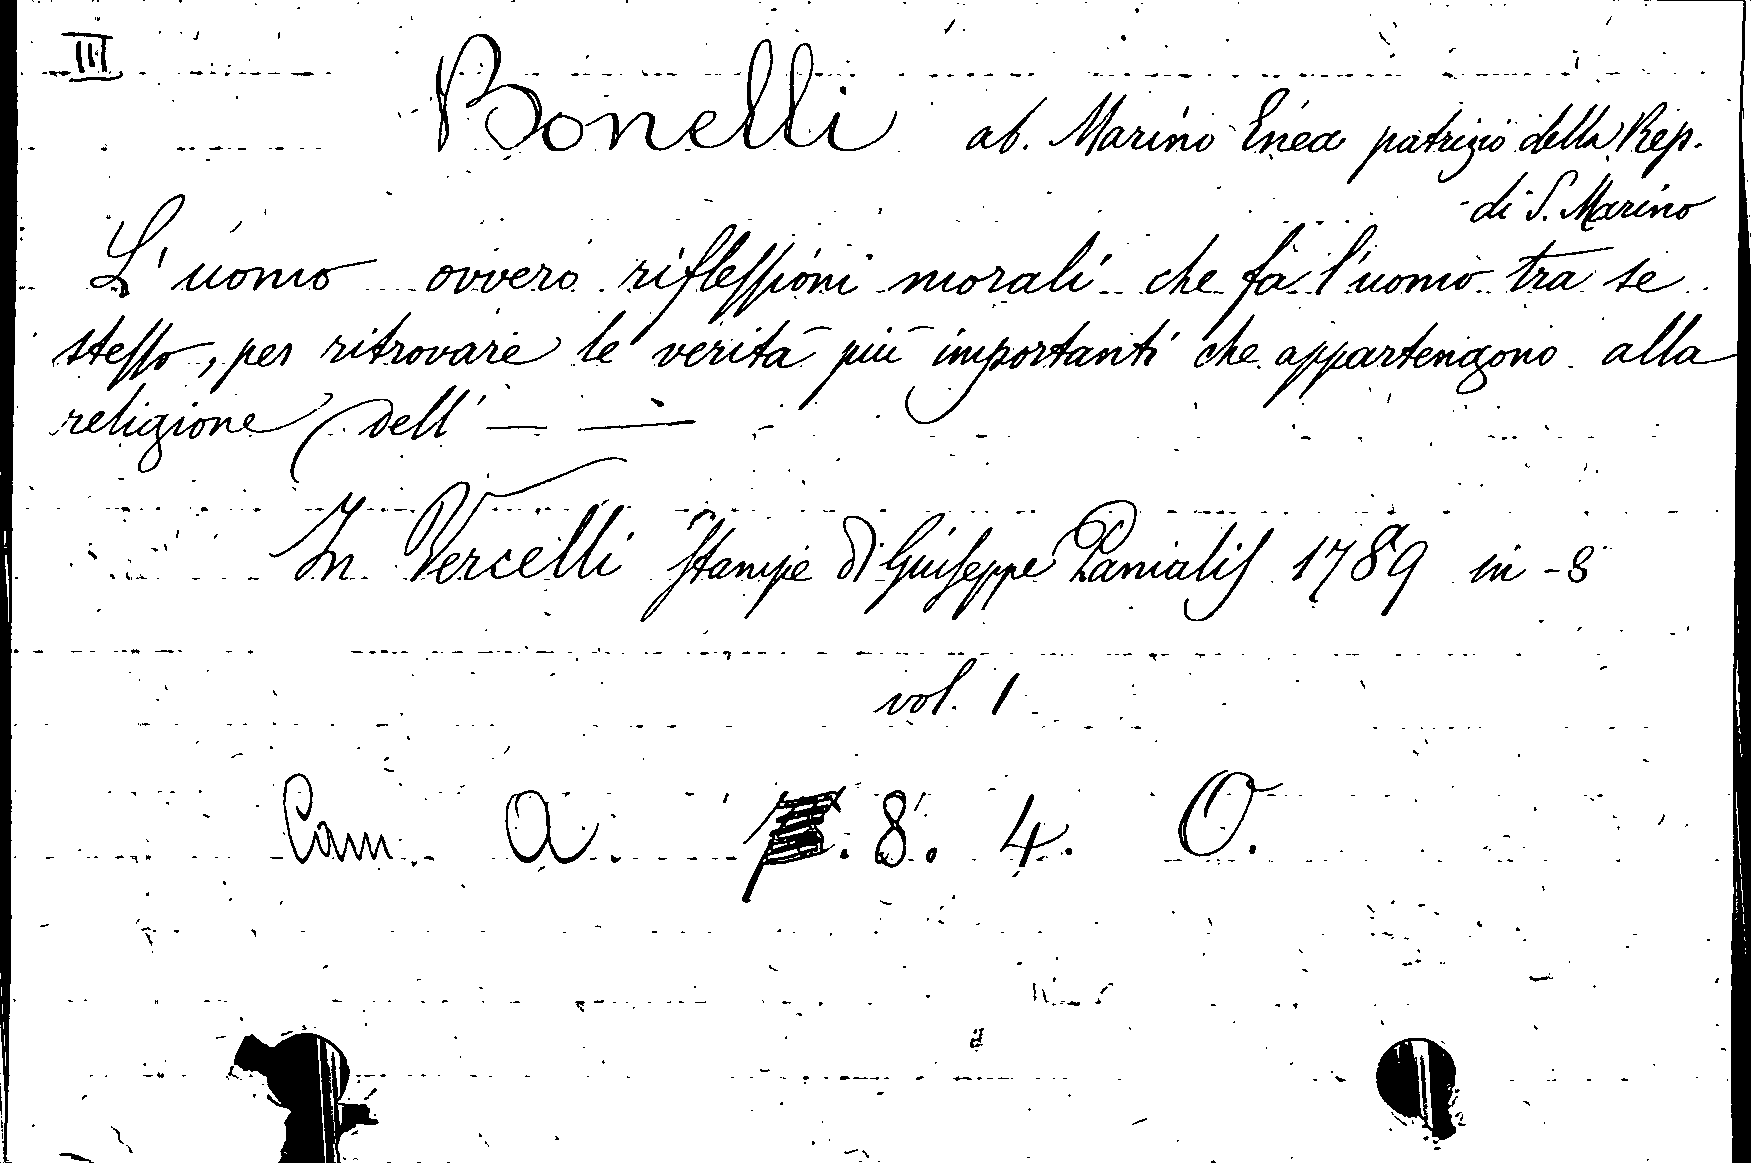 III
Bonelli ab. Marino Enea patrizio della Rep.
di S. Marino
L'uomo ovvero riflessioni morali che fa l'uomo tra se
stesso, per ritrovare le verità più importanti che appartengono alla
religione dell' — —
In Vercelli Stampe di Giuseppe Panialis 1789 in-8
vol. 1
Cam. A. 8. 4. O.